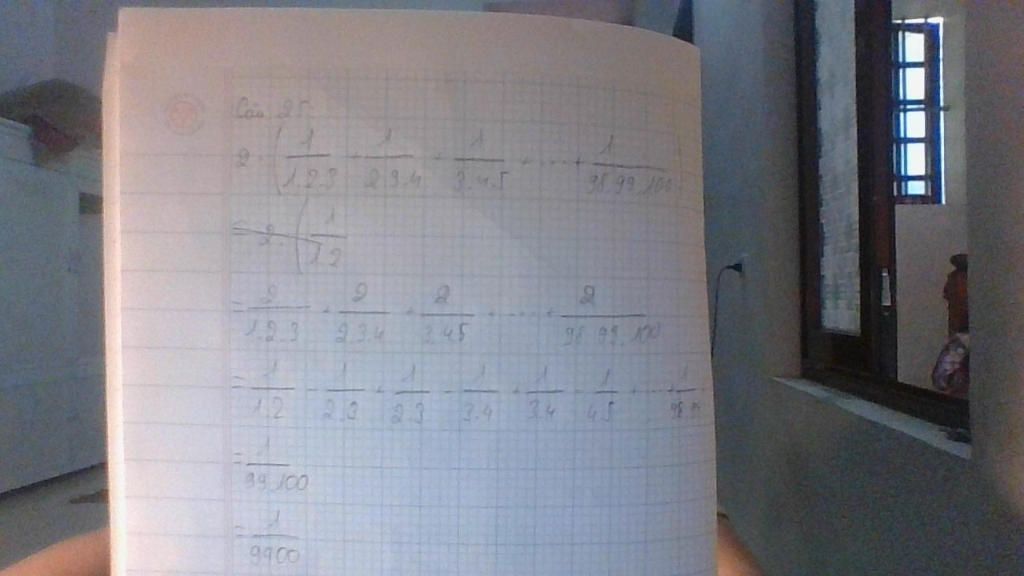 Câu 25:
2 . ( 1/1.2.3 + 1/2.3.4 + 1/3.4.5 + .... + 1/98.99.100 )
= 2 . ( 1/1.2
= 2/1.2.3 + 2/2.3.4 + 2/3.4.5 + .... + 2/98.99.100
= 1/1.2 - 1/2.3 + 1/2.3 - 1/3.4 + 1/3.4 - 1/4.5 + ... + 1/98.99
= 1/99.100
= 1/9900